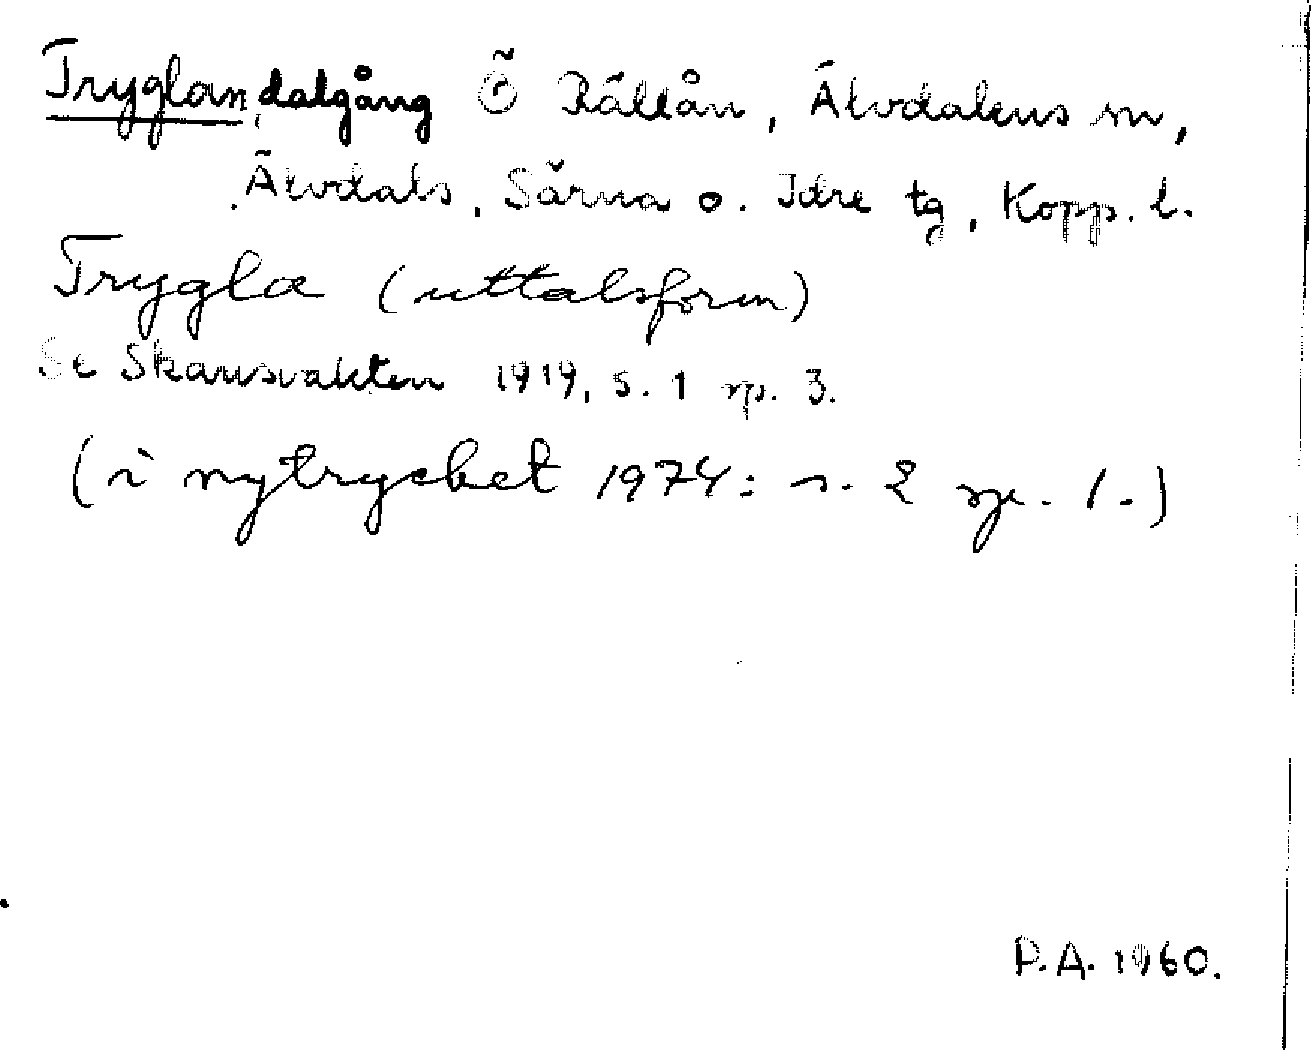 Tryglan, dalgång Ö Rällån, Älvdalens sn,
Älvdals, Särna o. Idre tg, Kopp. l.
Trygla (uttalsform)
Se Skansvakten 1919, s. 1 sp. 3.
(i nytrycket 1974: s. 2 sp. 1.)
P.A. 1960.